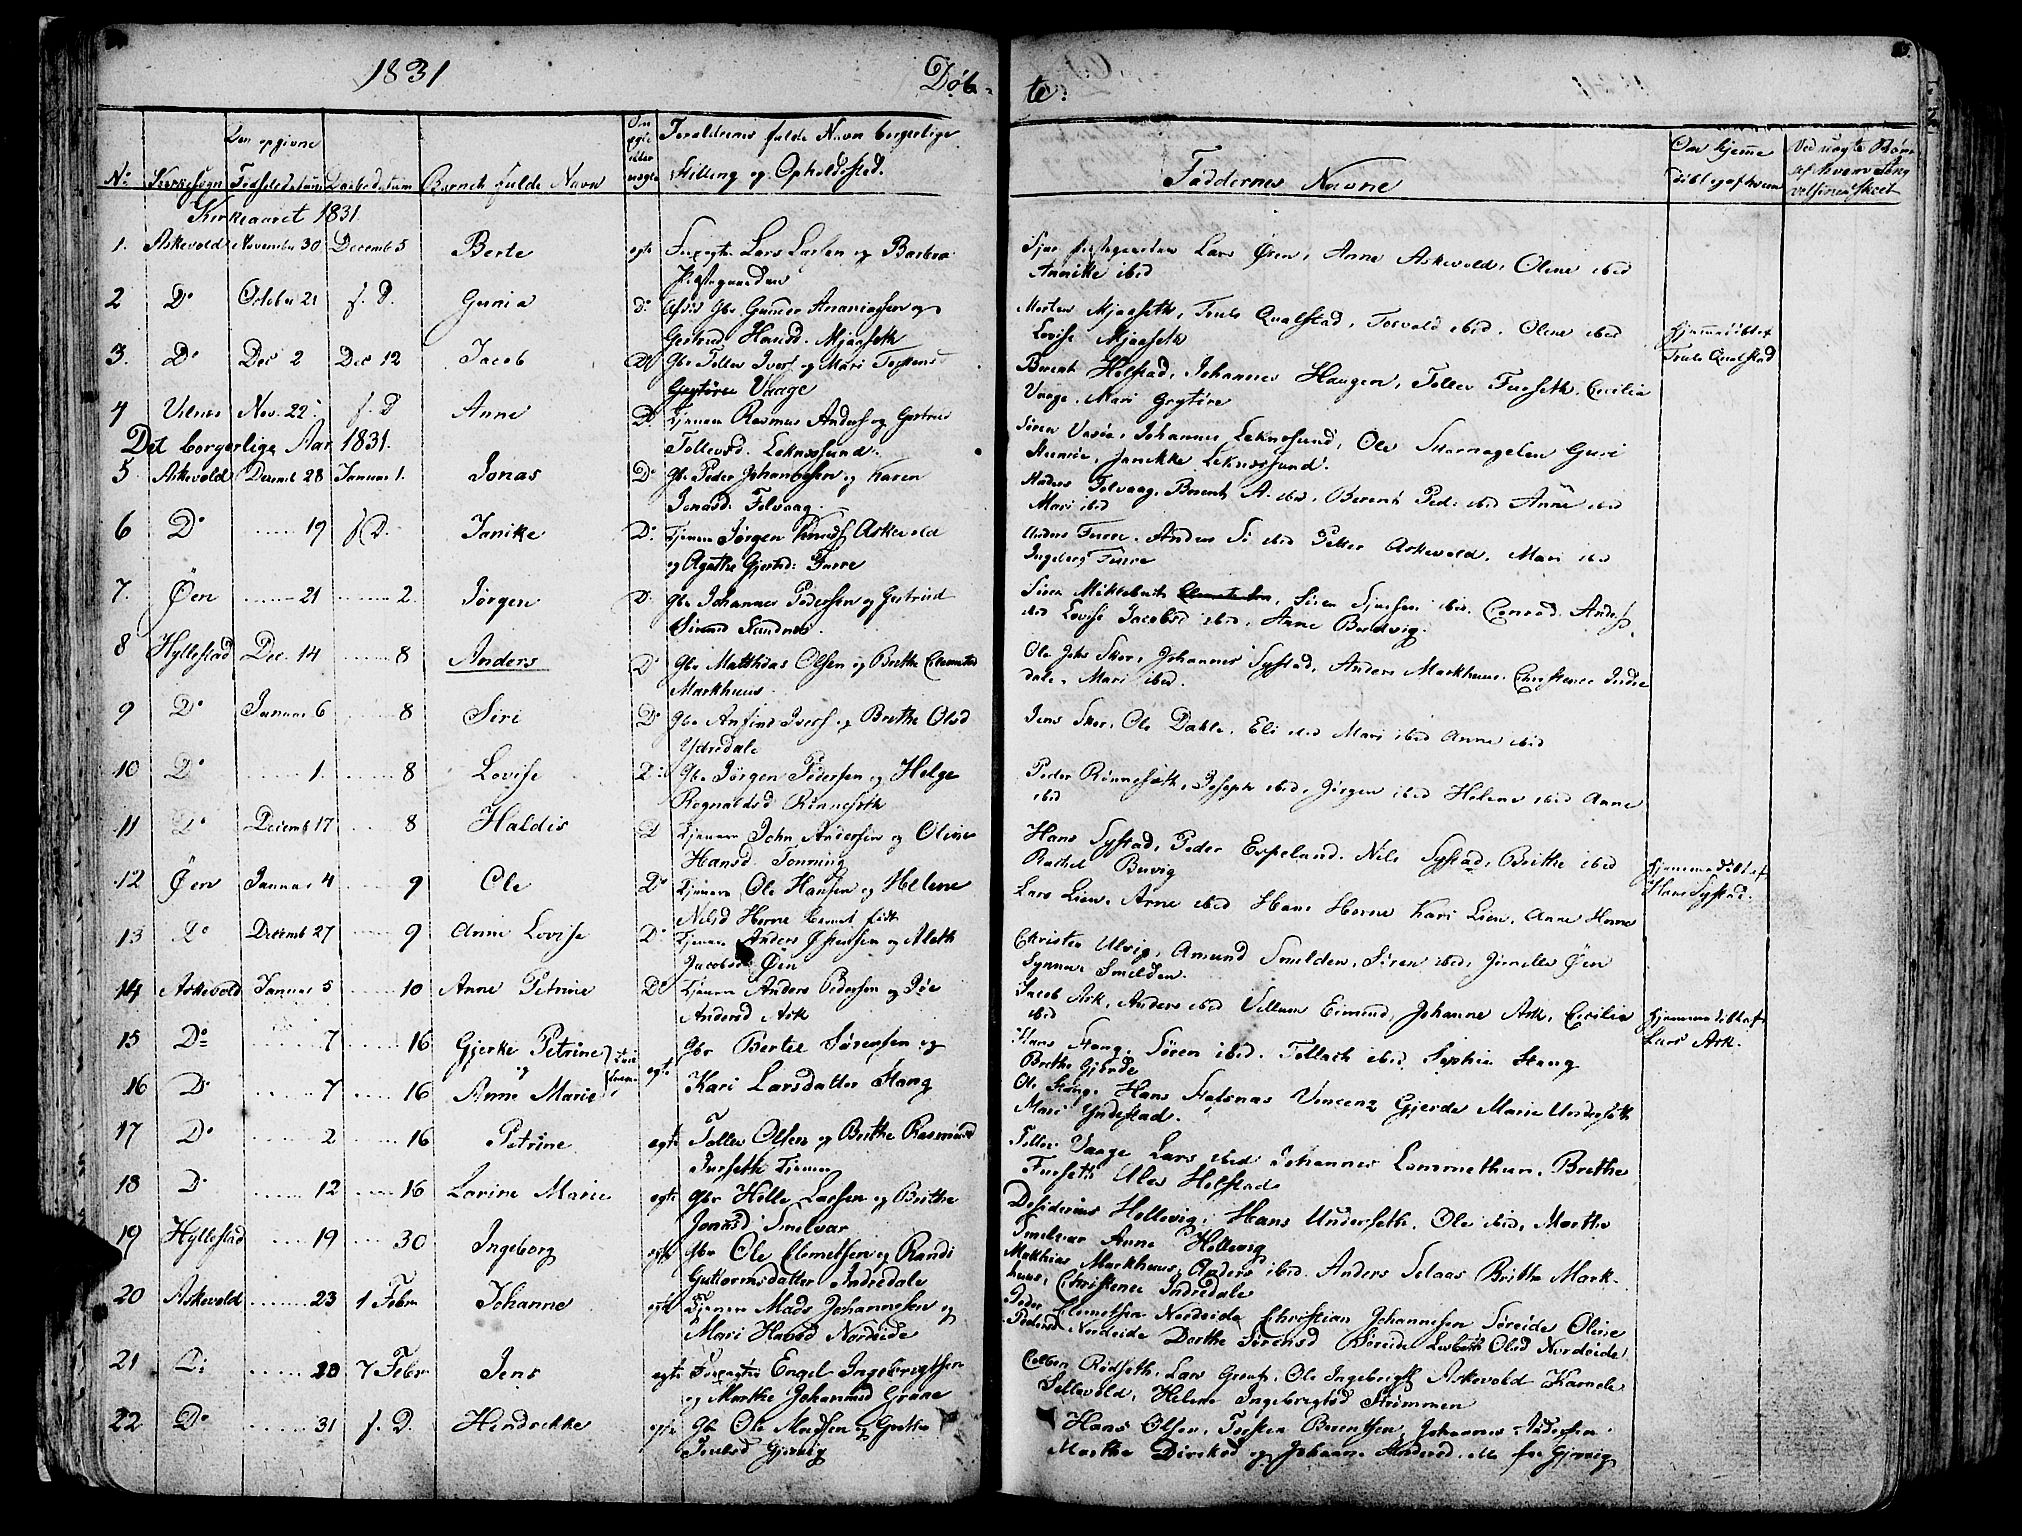 1831
Døb-
te.
Den opgivne
No
Kirkesogn
Fødselsdatum
Daabsdatum
Barnets fulde Navn
Om ægte eller uægte
Foreldrenes fulde Navn borgerlige
Stilling og Opholdssted.
Faddernes Navne
Om hjemme
døbt og af hvem
Ved uægte Børn
Kirkeaaret 1831
1. Askevold November 30 Decemb 5 Berte egte Lars Larsen og Barbra
Lars Øren, Anne Askevold, Oline ibid
Annike ibid
2 Do October 21 f. D. Gunia Do Gbr Gunner Ananiassen og
Gertrud Hansd. Mjaaseth
Morten Mjaaseth, Qvalstad, Torvald ibid. Oline ibid
Lovise Mjaaseth
Hjemmedøbt af
Qvalstad
3. Do Dec 2 Dec 12 Jacob Do Gbr Tollev Ivers og Mari Torstens
Grytøre Vaage
Berent Holstad, Johannes Haugen, Tollev Furseth, Cecilia
Vaage, Mari Grytøre
4 Vilnes Nov. 22 f. D Anne Do Tjenere Rasmus Anders og Gertrud
Tollevsd. Leknessund.
Søren Værøe, Johannes Leknesund, Ole Guri
Janikke Leknessund.
Det borgerlige Aar 1831.
5 Askevold Decemb 28 Januar 1. Jonas Do Gbr Peder Johannesen og Karen
Jonasd. Folvaag
Anders Folvaag, Berent A. ibid, Berent Ped. ibid Anne ibid
Mari ibid
6 Do 19 f D. Janike Do. Tjenere Jørgen Knuds Askevold
og Agathe Gjertsd: Furre
Anders Furre. Anders ibid Petter Askevold. Mari ibid
Ingeborg Furre
7. Øen 21 2. Jørgen D. Gbr Johannes Pedersen og Gertrud
Simensd Sandnes.
Søren Mikkelsen Søren ibid. Conrad Anders
ibid Lovise Jacobsd ibid, Anne Berdvig.
8 Hyllestad Dec. 14 8 Anders Do Gbr Matthias Olsen og Brithe Clemetsd
Markhuus.
Ole Johs Skor, Johannes Systad, Anders Markhuus. Christence Indre
dale. Mari ibid.
9 Do Januar 6 8 Siri Do Gbr Anfind Ivers og Brithe Olsd
Ytredale
Jens Skor, Ole Dahle, Eli ibid Mari ibid Anne ibid
10 Do 1. 8 Lovise D: Gbr Jørgen Pedersen og Helge
Regnaldsd Rønneseth
Peder Rønneseth, Joseph ibid, Jørgen ibid Helene ibid Anne
ibid
11 Do Decemb 17 8 Haldis D Tjenere John Andersen og Oline
Hansd. Tonning
Hans Systad, Peder Espeland. Nils Systad, Brithe ibid
Rachel Buvig
Hjemmedøbt af
Hans Systad.
12 Øen Januar 4 9 Ole Do Tjenere Ole Hansen og Helene
Nilsd Herne
Lars Lien. Arne ibid Hans Herne Kari Lien, Anne Herne
13 Do Decemb 27 9 Anne Lovise Do Tjenere Anders Østensen og Aleth
Jacobsd Øen
Christen Alvig, Amund Smelden, Søren ibid, Øen
Synneva Smelden.
14 Askevold Januar 5 10 Anne Petrine Do Tjenere Anders Pedersen og
Andersd Ask
Jacob Ask, Anders ibid Villum Eimind, Johanne Ask, Cecilia
ibid
Hjemmedøbt af
Lars Ask.
15 Do 7 16 Gjerke Petrine
og
egte
Gbr Bertel Sørensen og
Hans Stang, Søren ibid. Tollach ibid. Sophia Stang
Brithe Gjerde
16 D. 7 16 Anne Marie
Kari Larsdatter Stang
Ole Stang. Hans Stafsnæs Vincenz Gjerde Marie Underseth
Mari Yndestad.
17 Do 2 16 Petrine egte Tollev Olsen og Brithe Rasmusd
Furseth Tjenere
Tollev Vaage Lars ibid Johannes Lammethun. Brithe
Furseth Alis Holstad
18 D. 12 16 Lorine Marie egte Gbr Helle Larsen og Brithe
Jonasd Smelvær
Desiderius Hellevig, Hans Underseth. Ole ibid, Marthe
Smelvær Anne Hellevig
19 Hyllestad 19 30 Ingeborg egte Gbr Ole Clemetsen og Randi
Guttormsdatter Indredale
Matthias Markhuus, Anders ibid. Anders Selaas Brithe Mark-
huus, Christence Indredale
20 Askevold 23 1 Febr Johanne egte Tjenere Mads Johannesen og
Mari Hansd Nordeide
Peder Clemetsen Nordeide Christian Johannesen Søreide Oline
Pedersd Nordeide Dorthe Sørensd Søreide Lisbeth Olsd Nordeide
21 D: 20 7 Febr Jens egte Engel Ingebrigtsen
og Marthe Johannesd Grane
Colben Rødseth. Lars Ole Ingebrigts Askevold Karnele
Sellevold, Helene Ingebrigtsd Strømmen
22 Do 31 f. D. Hindrikke egte Gbr Ole Madsen og Grethe
Gjervig
Hans Olsen, Torsten Berentsen, Johannes Andersen,
Marthe Diriksd og Johanne Andersd. alle fra Gjervig